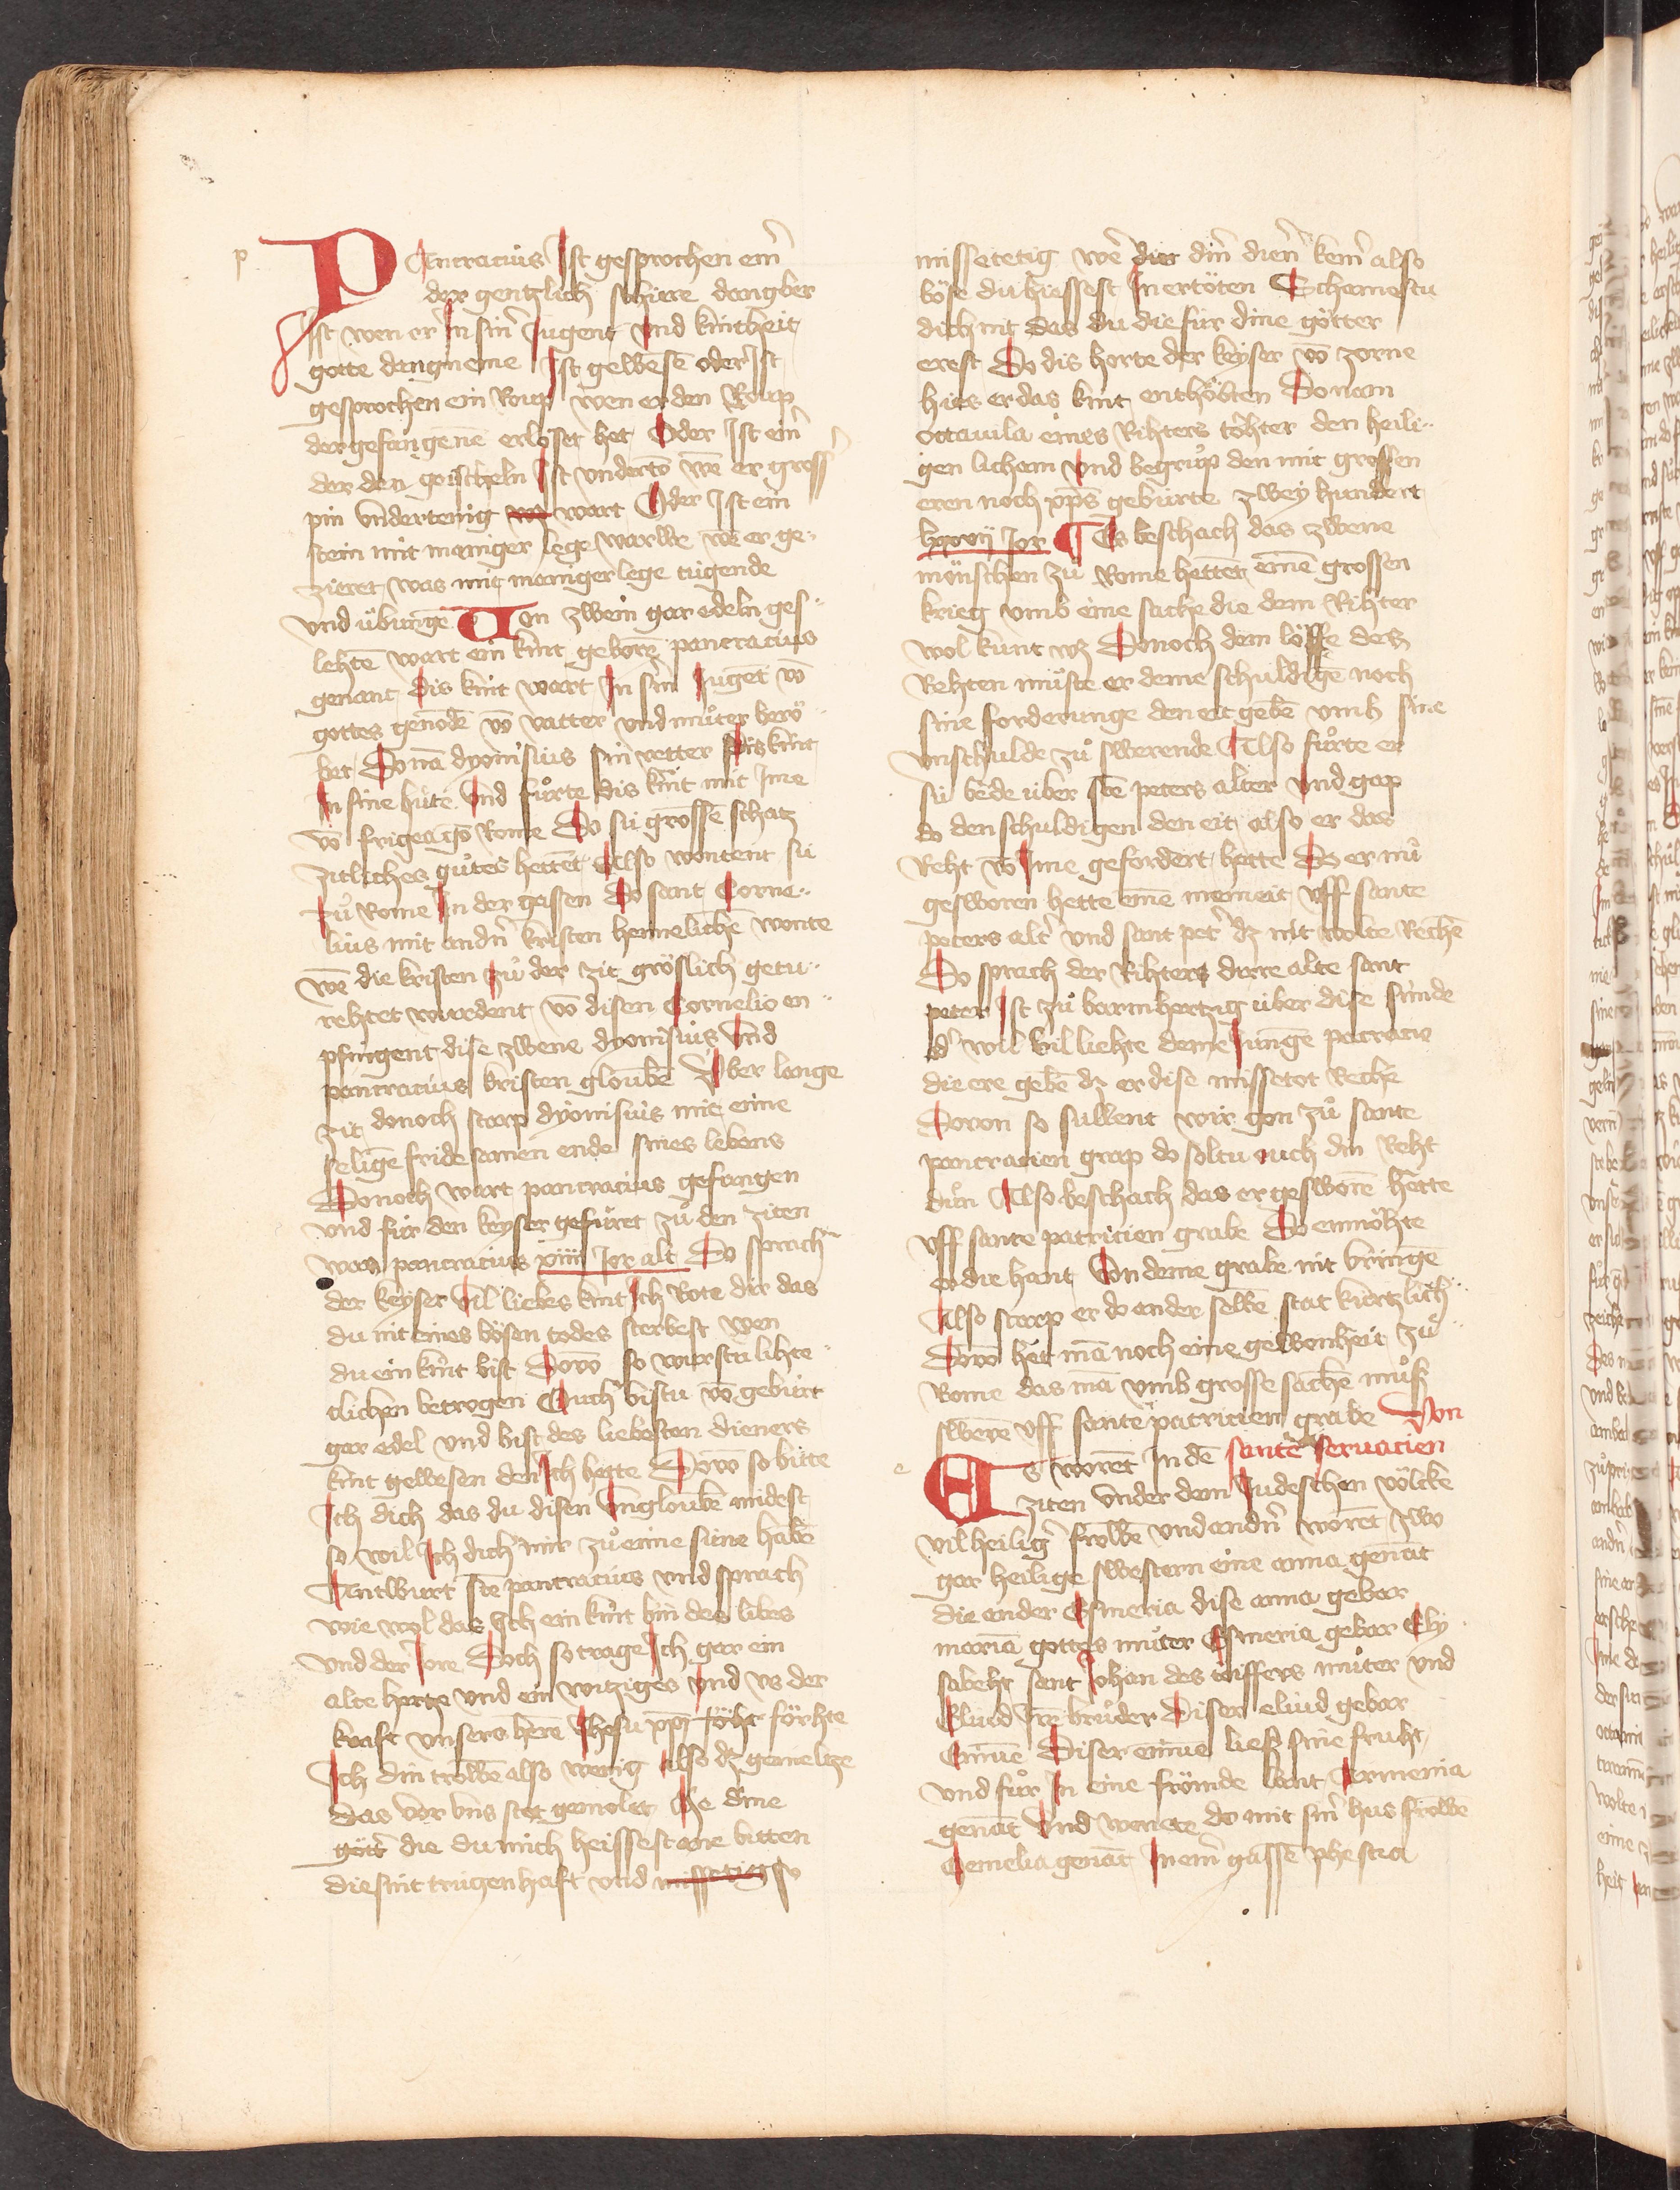 p
PAncracius Ist gesprochen ein̄
der gentzlich schiere dangber
Ist wen er In sin̄ Jugent vnd kintheit
gotte dangneme Ist gewesē oder Ist
gesprochen ein Roup wen er den Roup
der gefangenē erlöset het Oder Ist ein̄
der den geischeln Ist vndertō wē er gross̄
pin vndertenig wart Oder Ist ein
stein mit maniger lege varwe wē er ge¨
zieret was mit manigerlege tugende
vnd übūge Von zwein gar edeln ges¨
lehtē wart ein kint geborē pancracius
genant Dis kint wart In sin̄ Jugēt vō
gottes genodē vō vatter vnd můter berö¨
bet Do nā dyonisius sin vetter dis kint
In sine hůte Vnd fůrte dis kint mit Ime
vō frigea gō Rome Do sü grossē schatz
zitliches gůtes hettēt Also wontent sü
zů Rome In der gassen Do sant Corne¨
lius mit andn̄ kristen heimelichē wonte
wē die kristen zů der zit gröslich getu¨
rehtet wurdent vō disen Cornelio en¨
pfingent dise zwene dyonisius Vnd
pancracius kristen gloubē Vber lange
zit donoch starp dyonisius mit eime
seligē fridesamen ende sines lebens
Donoch wart pancracius gefangen
vnd für den keyser gefüret zů den ziten
was pancracius xiiii Jor alt Do sprach
der keyser Vil liebes kint Ich Rote dir das
du nit eines bösen todes sterbest wen
du ein kint bist Dovō so wurstu lihte¨
clichen betrogen Ouch bistu vō geburt
gar edel vnd bist des liebesten dieners
kint gewesen den Ich hette Dovō so bitte
Ich dich das du disen Vngloubē midest
so wil Ich dich mir zů eime sune habē
Antwurt ste pancracius vnd sprach
wie wol das Ich ein kint bin des libes
vnd der Jore Doch so trage Ich gar ein
alte hertze vnd ein witziges vnd vs der
kraft vnsers herē Jhesu xp̄i förhte
Ich din trowē also wenig also dz gemeltze
das vor vns stot gemolet Die dine
götter die du mich heissest ane bitten
die sint trugenhaft vnd
missetetig wē din̄ dien̄ kein̄ also
böse du hiessest In ertöten Schamestu
dich nit das du die für dine götter
erest Do dis horte der keyser vō zorne
hies er das kint enthöbten Do nam
octauila eines Rihters tohter den heili¨
gen licham vnd begrůp den mit grossen
eren noch xp̄s gebürte zwey hundert
lxxvij Jor ¶ Es beschach das zwene
mönschen zů Rome hettēt einē grossen
krieg vmb eine sache die dem Rihter
wol kunt wz Donoch dem löffe des
Rehten můste er deme schuldigē noch
sine forderunge den eit gebē vmb sine
vnschulde zů swerende Also fůrte er
sü bede über ste peters alter vnd gap
do den schuldigen den eit also er das
Reht vō Ime gefordert hette Do er nů
gesworen hette einē meineit vff sante
peters alt̄ vnd sant pet̄ dz nit wolte Rechē
Do sprach der Rihters dirre alte sant
peter Ist zů barmhertzig über dise sünde
d̄ wil vil liehte deme Jungē pacracio
die ere gebē dz er dise missetot Reche
Dovon so sullent wir gon zů sante
pancracien grap do soltu ouch din Reht
důn Also beschach das er gesworē hette
vff sante patricien grabe Do enmohte
er die hant Von deme grabe nit bringē
Also starp er do an der selbē stat kürtzlich¨
Dovō het mā noch eine gewonheit zů
Rome das mā vmb grosse sachē můß
swerē vff sante patricien grabe Von
sante seruacien
e
ES worēt In dē
ziten vnder dem Judeschen völcke
vil heiliḡ frowē vnd andn̄ worēt zwo
gar heilige swestern eine anna genāt
die ander Esmeria dise anna gebar
mariā gottes můter Esmeria gebar Ely
sabeht sant Johan des töiffers můter vnd
Eliud Ire brůder Diser eliud gebar
Eminē Diser eminē liess sine fruht
vnd fůr In eine frömde lant Armenia
genāt Vnd wonete do mit sin̄ hus frowē
Memelia genāt In ein̄ gassē phestia